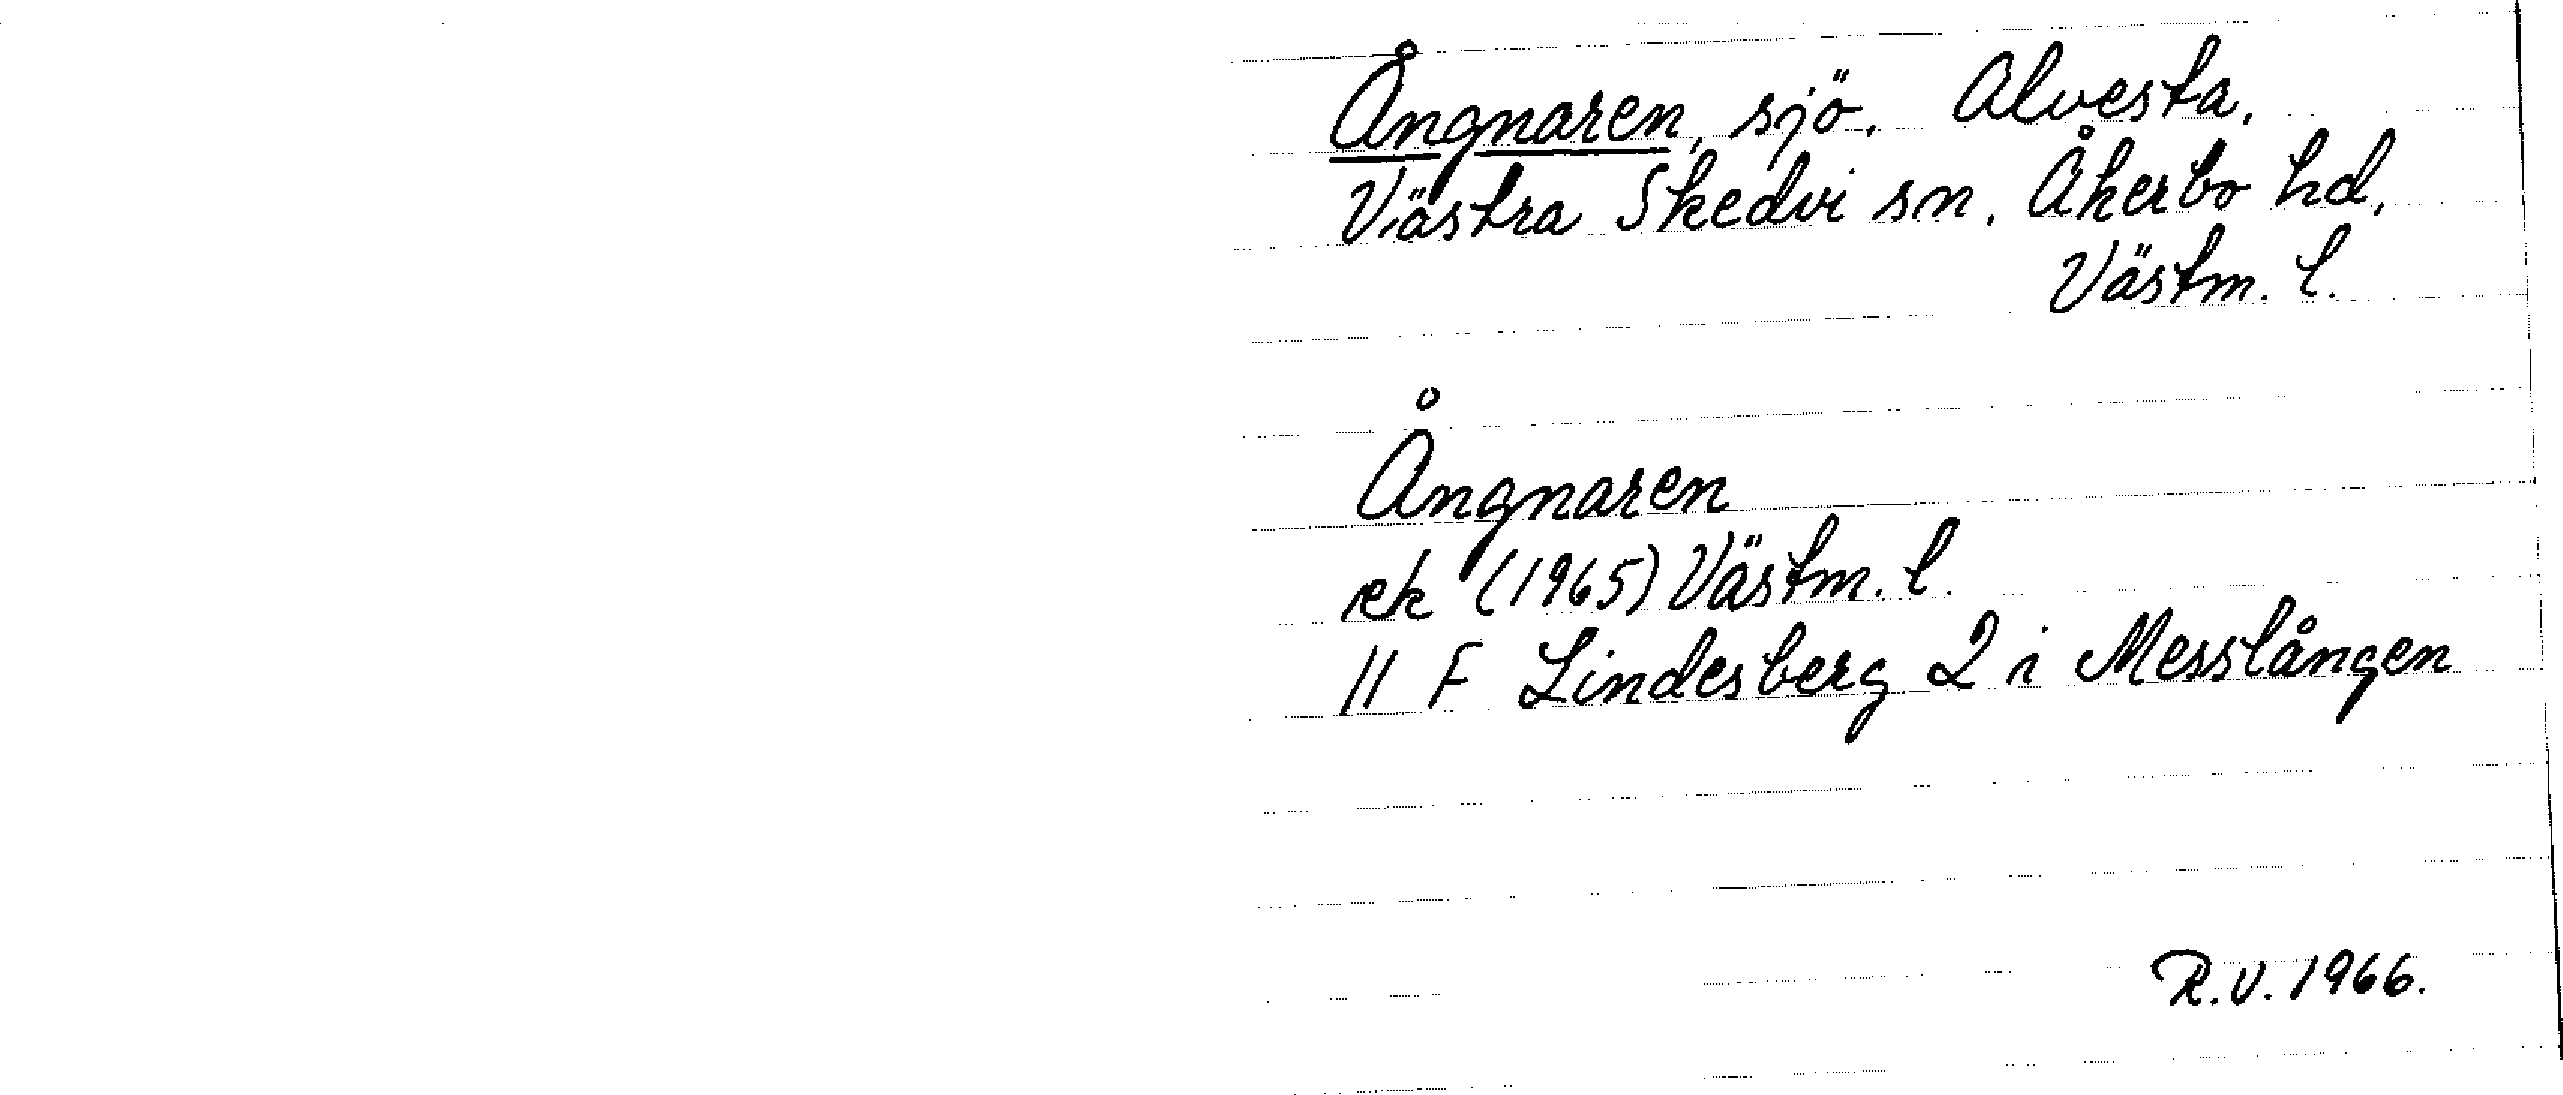 Ångnaren, sjö. Alvesta,
Västra Skedvi sn. Åkerbo hd,
Västm. l.
Ångnaren
ek (1965) Västm. l.
11 F Lindesberg 2 i Messlången
R.V. 1966.